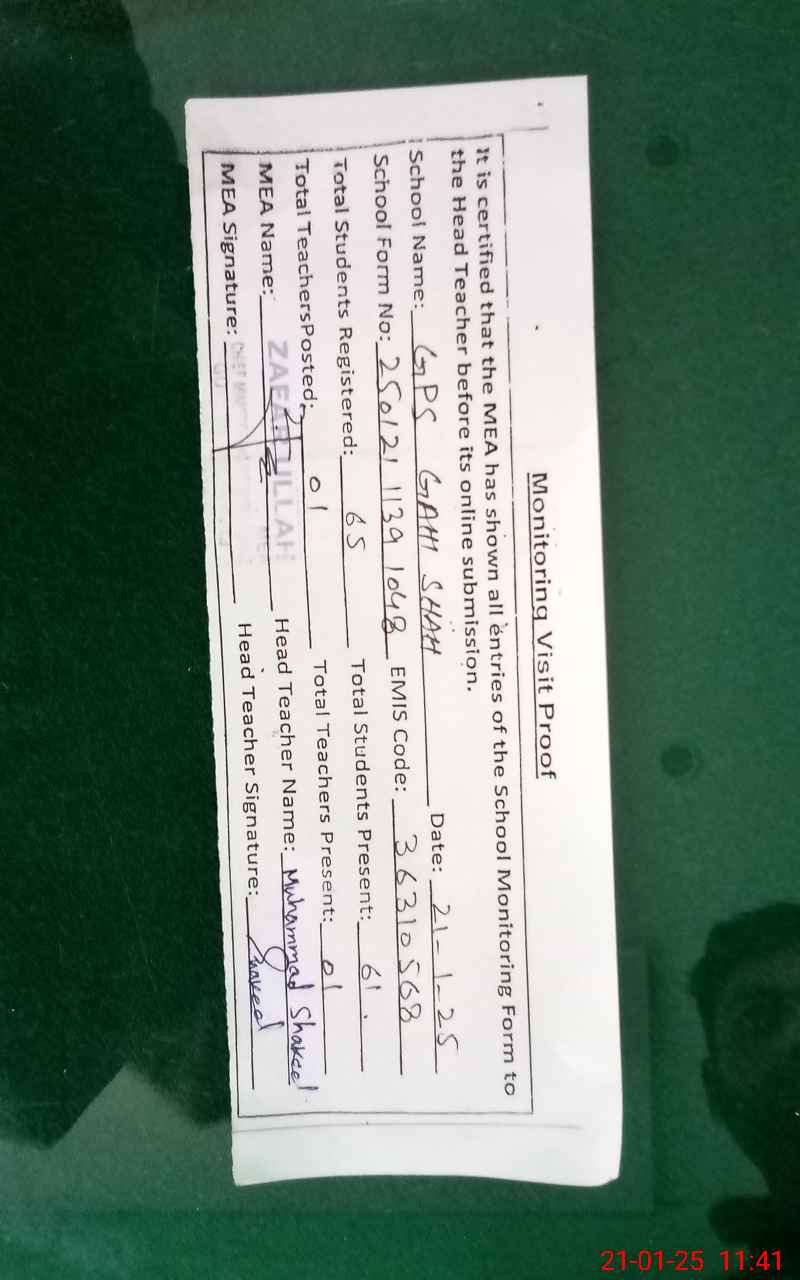 Monitoring Visit Proof
It is certified that the MEA has shown all entries of the School Monitoring Form to
the Head Teacher before its online submission.
School Name: GPS GAHI SHAH Date: 21-1-25
School Form No: 250121 1139 1048 EMIS Code: 36310568
Total Students Registered: 65 Total Students Present: 61.
Total TeachersPosted: 01 Total Teachers Present: 01
MEA Name: ZAFAR ULLAH Head Teacher Name: Muhammad Shakeel
MEA Signature: Head Teacher Signature: Shakeel
21-01-25 11:41